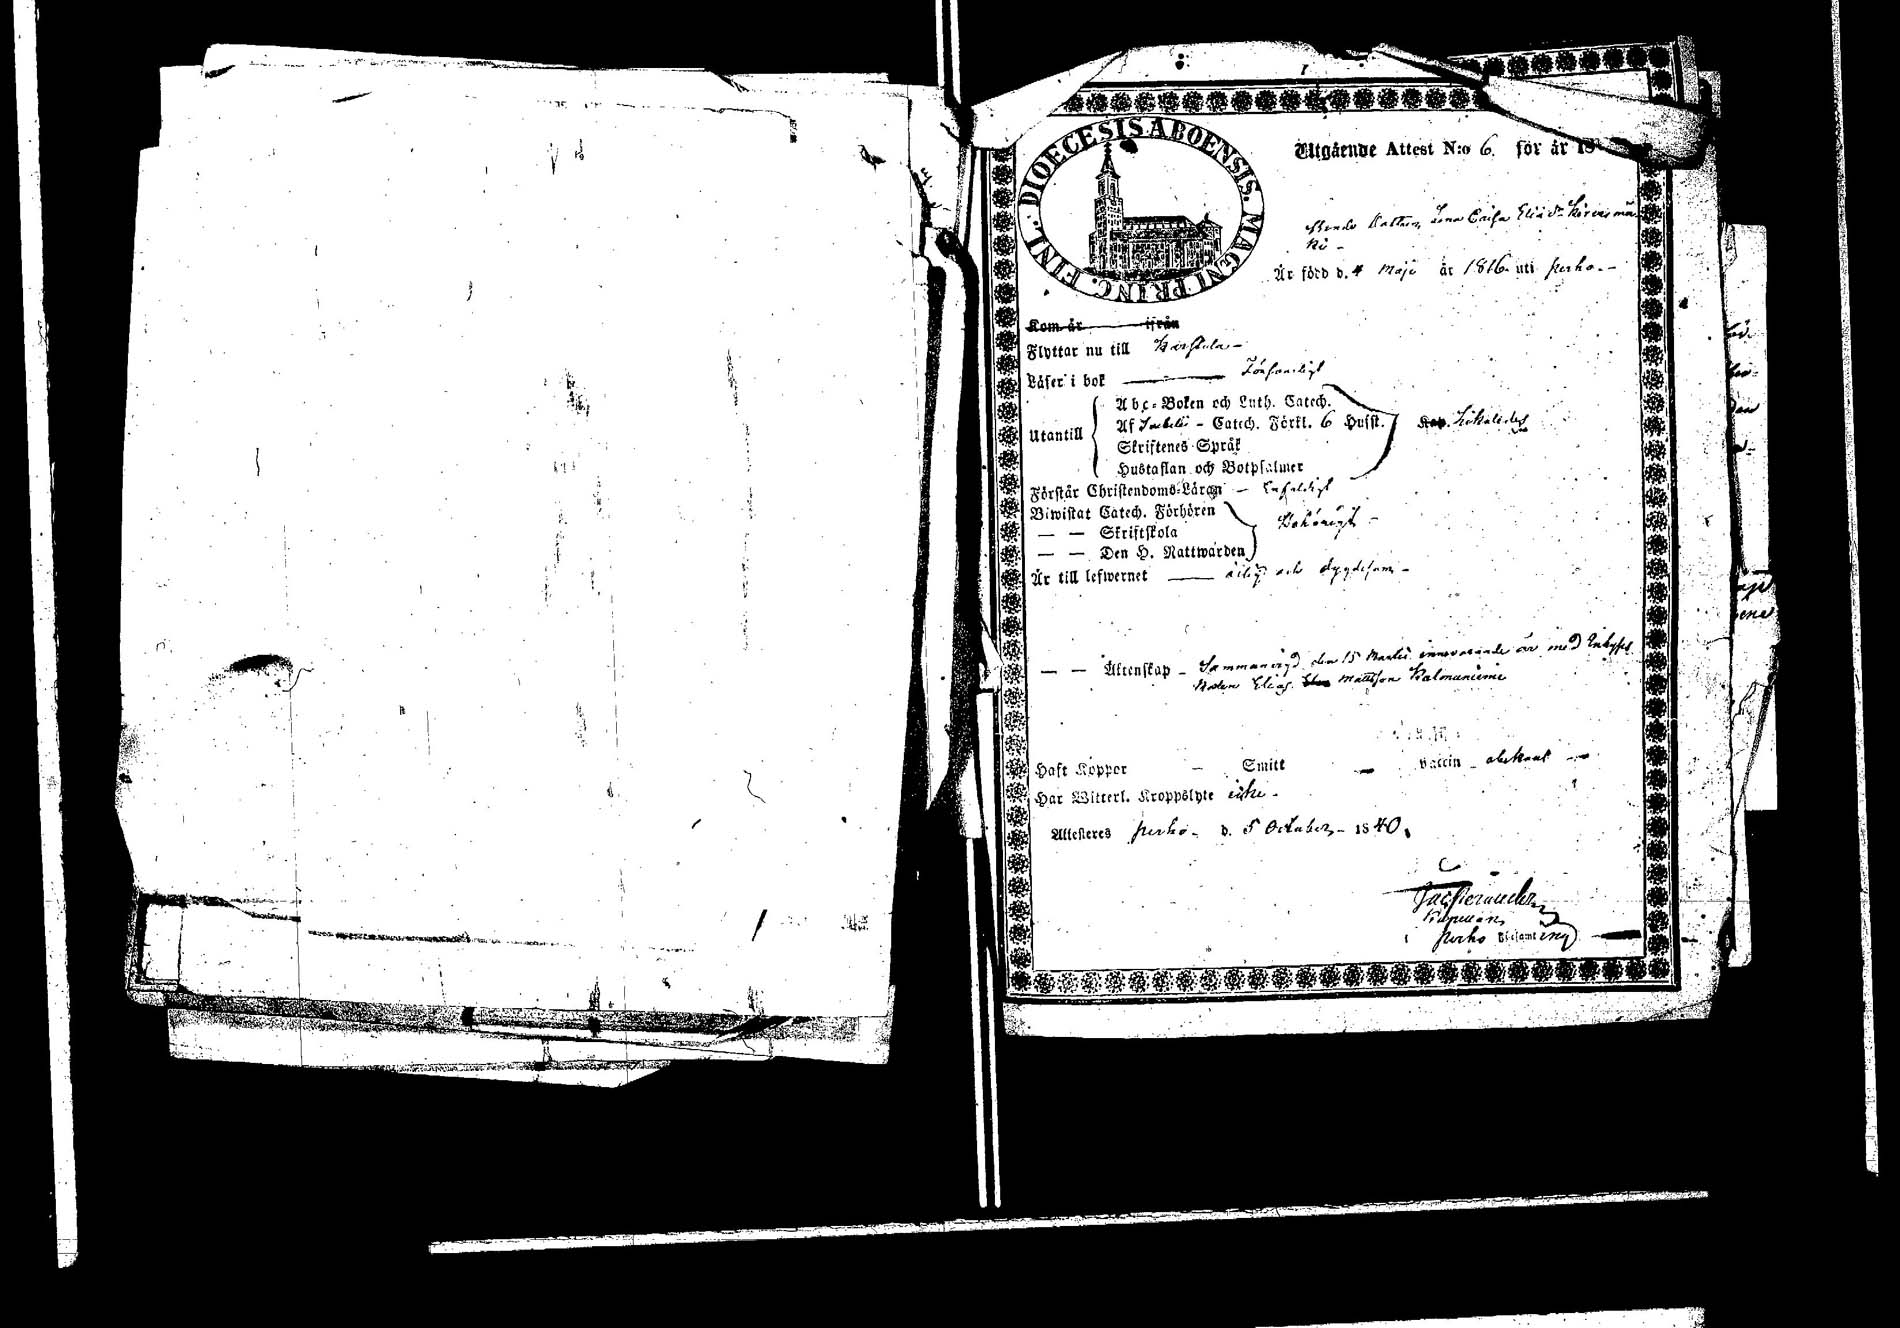 DIOECESIS ABOENSIS. MAGNI PRINC. FINL.
Utgående Attest N:o 6. för år 18
Lena Caisa Eliæ dr Kärnämä
ki -
Är född d. 4 Maji år 1816. uti Perho. -
Kom år ifrån
Flyttar nu till Karstula -
Läser i bok Försvarligt
Utantill
Abc-Boken och Luth. Catech.
Af Svebelii - Catech. Förkl. 6 Hufst.
Skriftenes Språk
Hustaflan och Botpsalmer
Likaledes
Förstår Christendoms-Läran - Enfaldigt
Biwistat Catech. Förhören
— — Skriftskola
— — Den H. Nattwarden
Behörigt -
Är till lefwernet — ärlig och dygdesam -
— — Äktenskap - Sammanvigd den 15 Martii innevarande år med Inhyses
Elias Mattsson Kalmuniemi
Haft Koppor - Smitt - Vaccin - obekant -
Har Witterl. Kroppslyte icke -
Attesteres Perho - d. 5 October - 1840.
Kapellan
Perho